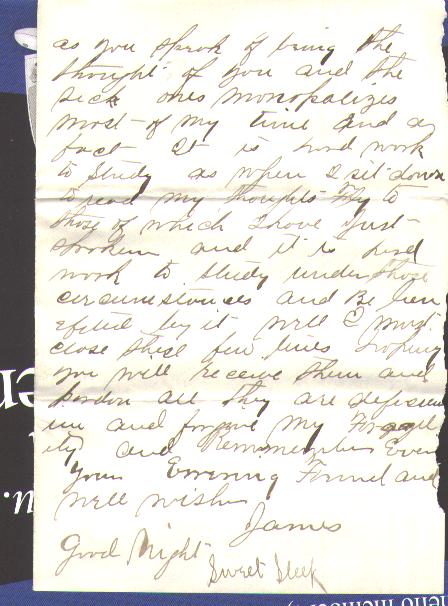 as you speak of being the
thought of you and the
sick ones monopalizes
most of my time and a
fact it is hard work
to study as when I sit down
to read my thoughts fly to
those of which I have just
spoken and it is hard
work to study under those
circumstances and Be ben
efited by it well I must
close these few lines hoping
you will receive them and
pardon all they are
and forgive my
ity and Remember Ever
your Friend and
well wisher
James
Good Night
Sweet Sleep